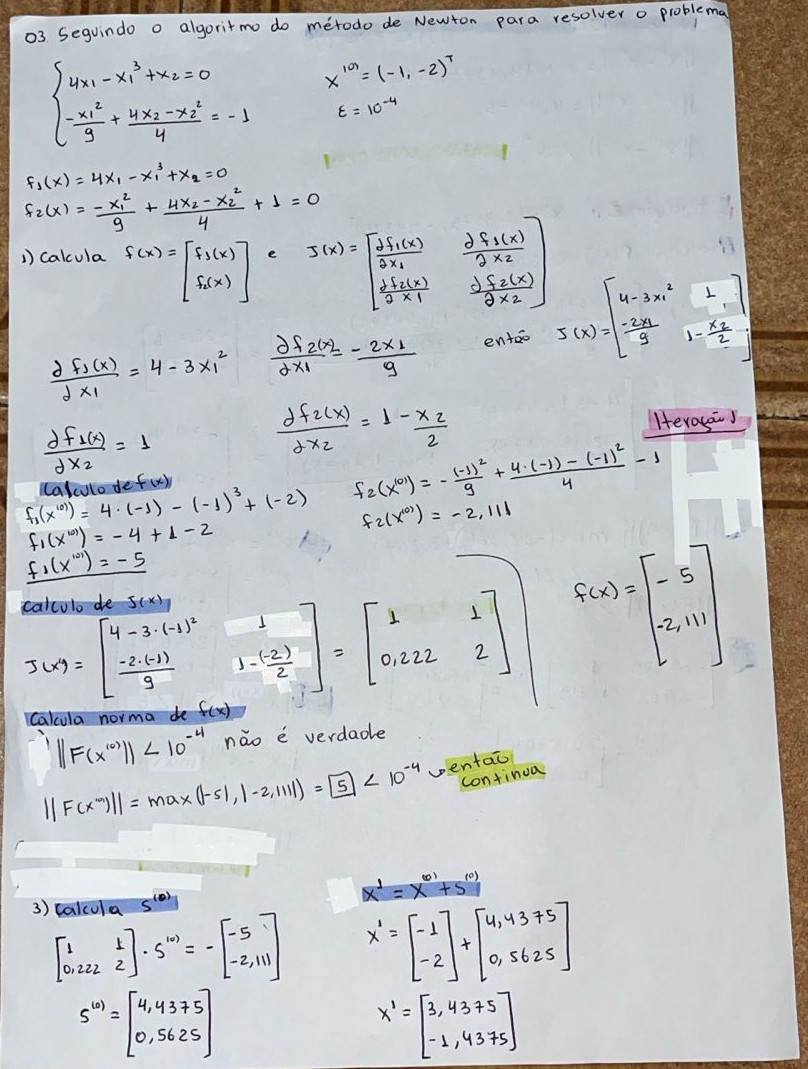 03. Seguindo o algoritmo do método de Newton para resolver o problema
4x₁ - x₁³ + x₂ = 0
x⁽⁰⁾ = (-1, -2)ᵀ
-x₁²/9 + (4x₂ - x₂²)/4 = -1
ε = 10⁻⁴
f₁(x) = 4x₁ - x₁³ + x₂ = 0
f₂(x) = -x₁²/9 + (4x₂ - x₂²)/4 + 1 = 0
1) Calcula f(x) = [f₁(x) ; f₂(x)] e J(x) = [∂f₁(x)/∂x₁ ∂f₁(x)/∂x₂ ; ∂f₂(x)/∂x₁ ∂f₂(x)/∂x₂]
∂f₁(x)/∂x₁ = 4 - 3x₁² ∂f₂(x)/∂x₁ = -2x₁/9 então J(x) = [4 - 3x₁² 1 ; -2x₁/9 1 - x₂/2]
∂f₁(x)/∂x₂ = 1 ∂f₂(x)/∂x₂ = 1 - x₂/2
Iteração 1
Calculo de f(x)
f₁(x⁽⁰⁾) = 4·(-1) - (-1)³ + (-2)
f₁(x⁽⁰⁾) = -4 + 1 - 2
f₁(x⁽⁰⁾) = -5
f₂(x⁽⁰⁾) = -(-1)²/9 + (4·(-1) - (-1)²)/4 - 1
f₂(x⁽⁰⁾) = -2,111
f(x) = [-5 ; -2,111]
calculo de J(x)
J(x⁰) = [4 - 3·(-1)² 1 ; -2·(-1)/9 1 - (-2)/2] = [1 1 ; 0,222 2]
Calcula norma de f(x)
||F(x⁽⁰⁾)|| < 10⁻⁴ não é verdade
||F(x⁽⁰⁾)|| = max(|-5|, |-2,111|) = 5 < 10⁻⁴ então continua
3) Calcula s⁽⁰⁾
[1 1 ; 0,222 2] · s⁽⁰⁾ = -[-5 ; -2,111]
s⁽⁰⁾ = [4,4375 ; 0,5625]
x¹ = x⁽⁰⁾ + s⁽⁰⁾
x¹ = [-1 ; -2] + [4,4375 ; 0,5625]
x¹ = [3,4375 ; -1,4375]